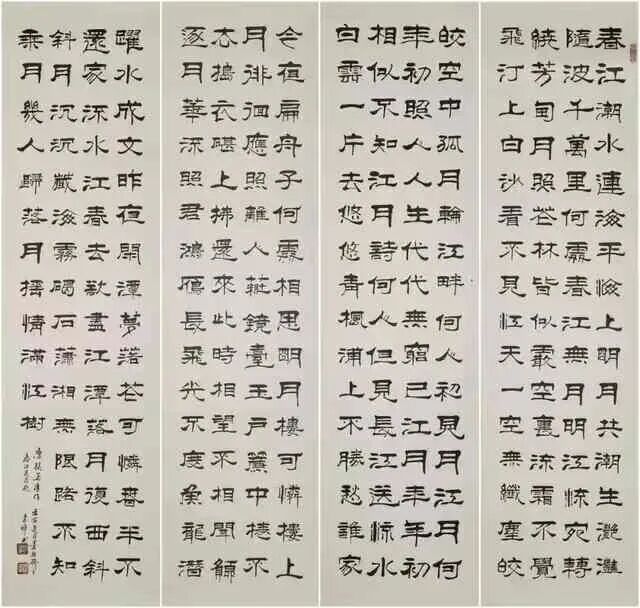 春江潮水連海平海上明月共潮生灩灩
隨波千萬里何處春江無月明江流宛轉
繞芳甸月照花林皆似霰空裏流霜不覺
飛汀上白沙看不見江天一空無纖塵皎
皎空中孤月輪江畔何人初見月江月何
年初照人人生代代無窮已江月年年初
相似不知江月詩何人但見長江送流水
白雲一片去悠悠青楓浦上不勝愁誰家
今夜扁舟子何處相思明月樓可憐樓上
月徘徊應照離人莊鏡臺玉戶簾中捲不
去擣衣砧上拂還來此時相望不相聞願
逐月華流照君鴻雁長飛光不度魚龍潛
躍水成文昨夜閑潭夢落花可憐春半不
還家流水江春去欲盡江潭落月復西斜
斜月沉沉藏海霧碣石瀟湘無限路不知
乘月幾人歸落月搖情滿江樹